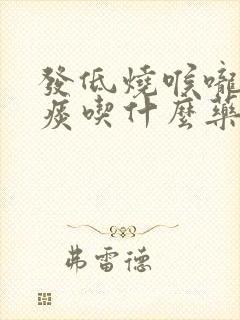 發低燒喉嚨
痰喫什麼藥
弗雷德